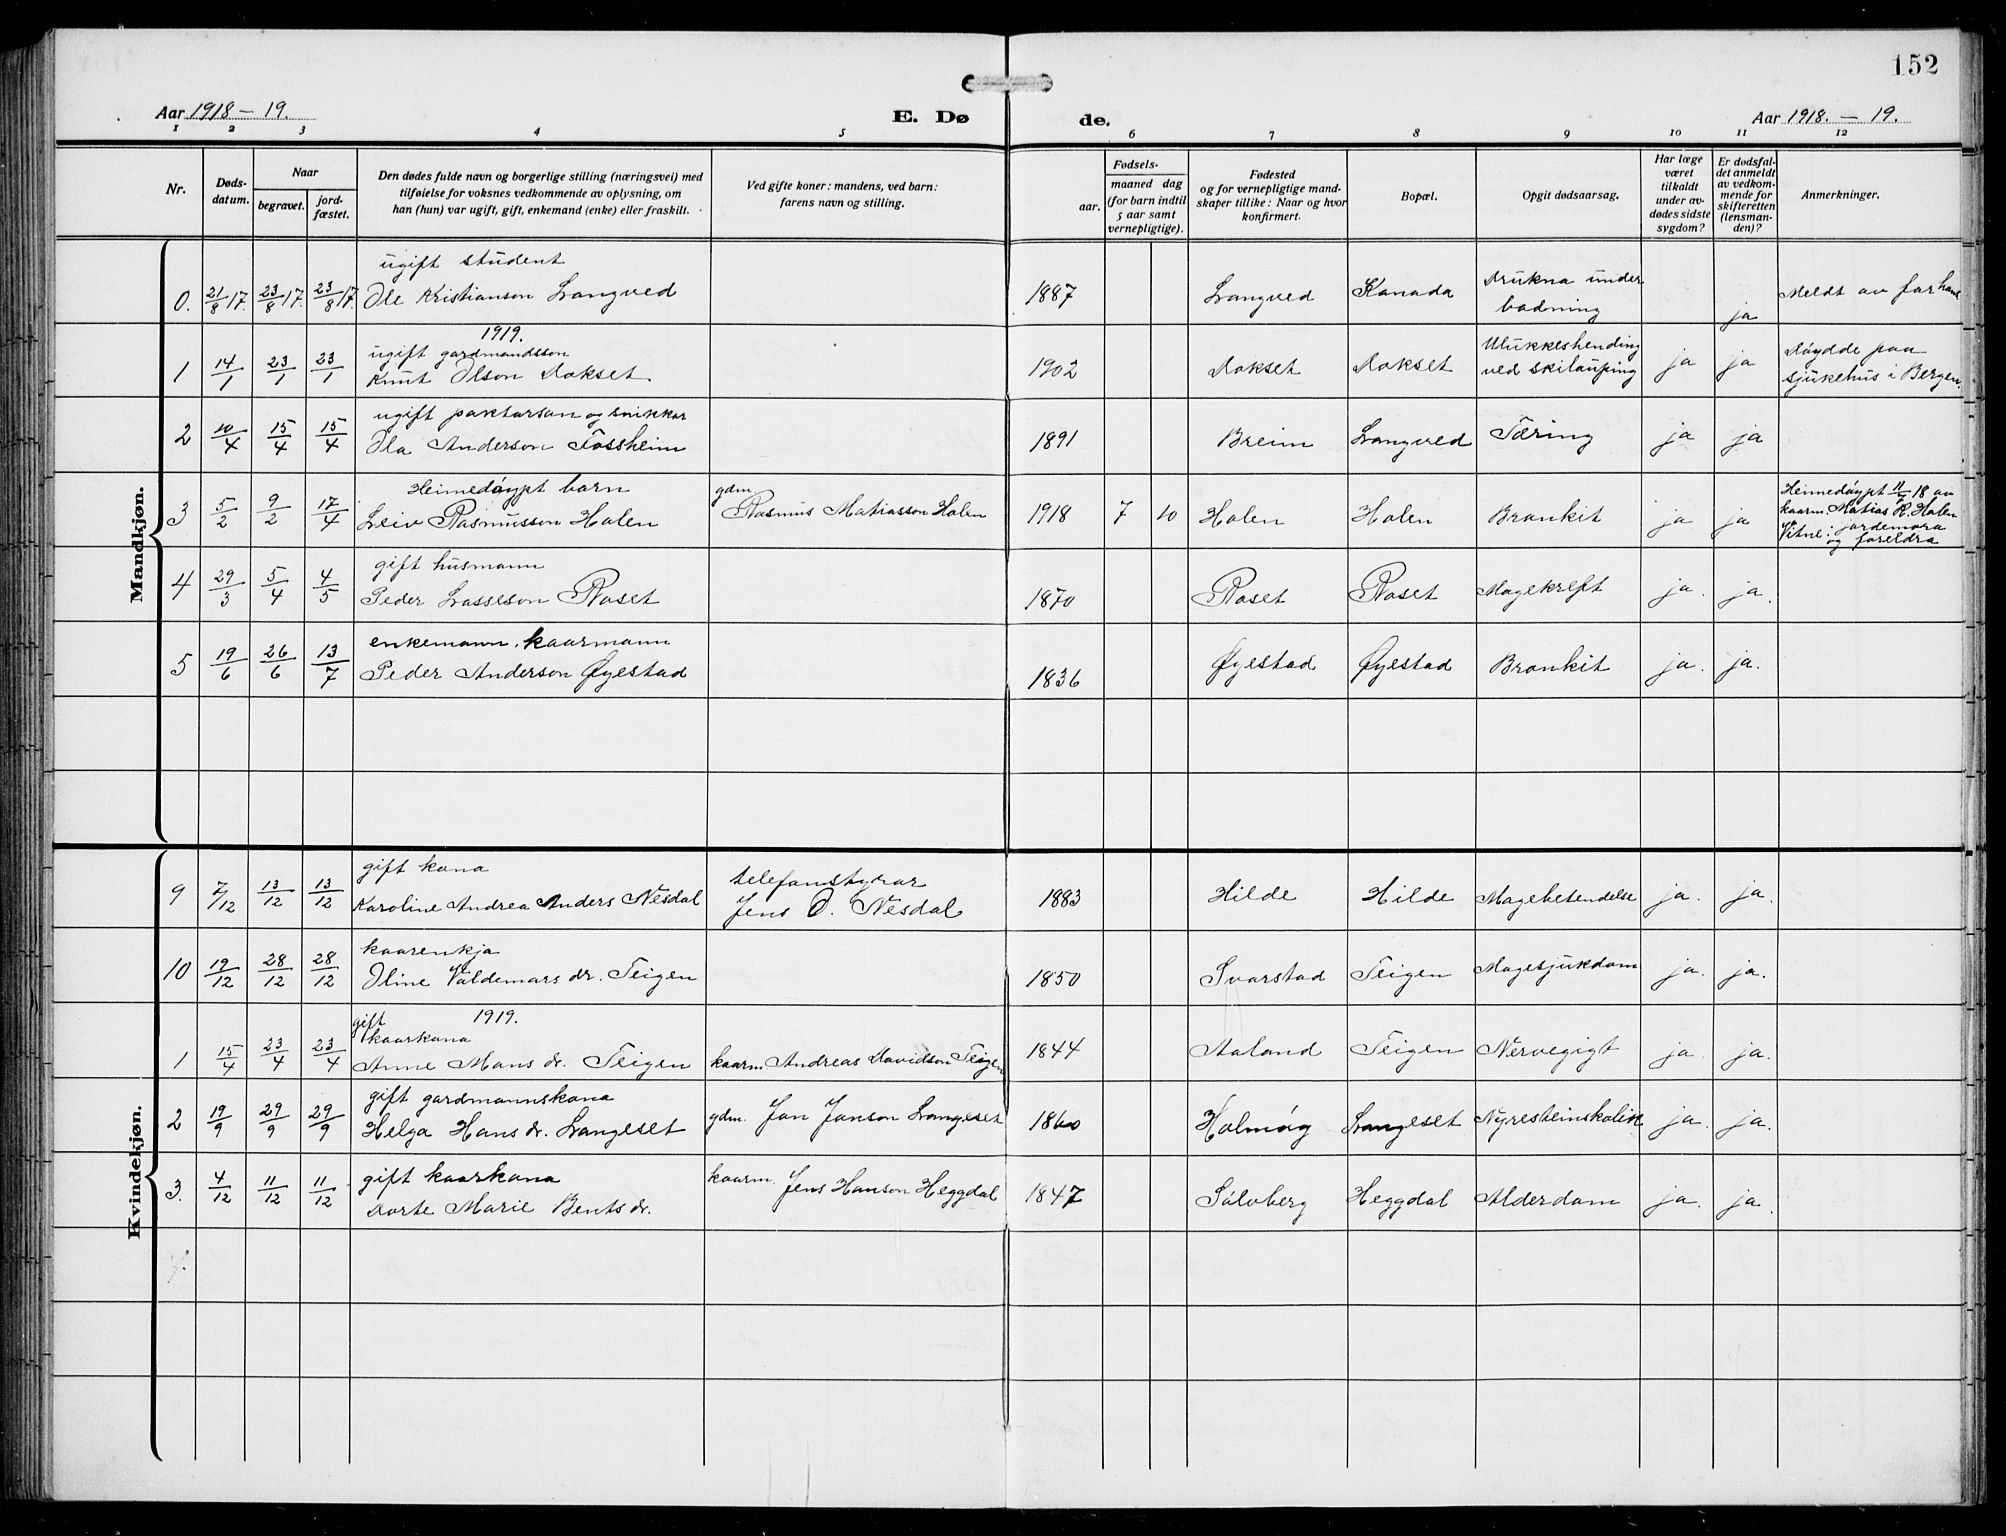 152
Aar 1918 – 19.
E. Dø
de.
Aar 1918. – 19.
1 2 3 4 5 6 7 8 9 10 11 12
Nr.
Døds-
datum.
Naar
begravet.
jord-
fæstet.
Den dødes fulde navn og borgerlige stilling (næringsvei) med
tilføielse for voksnes vedkommende av oplysning, om
han (hun) var ugift, gift, enkemand (enke) eller fraskilt.
Ved gifte koner: mandens, ved barn:
farens navn og stilling.
Fødsels-
aar.
maaned dag
(for barn indtil
5 aar samt
vernepligtige).
Fødested
og for vernepligtige mand-
skaper tillike: Naar og hvor
konfirmert.
Bopæl.
Opgit dødsaarsag.
Har læge
været
tilkaldt
under av-
dødes sidste
sygdom?
Er dødsfal-
det anmeldt
av vedkom-
mende for
skifteretten
(lensman-
den)?
Anmerkninger.
Mandkjøn.
ugift student
0. 21/8 17. 23/8 17. 23/8 17. Ole Kristianson Langved 1887 Langved Kanada Drukna under
badning ja Meldt av far hans
1919.
ugift gardmandsson
1 14/1 23/1 23/1 Knut Olson Dokset 1902 Dokset Dokset Ulukkeshending
ved skilauping ja ja Döydde paa
sjukehus i Bergen.
ugift paktarson og snikkar
2 10/4 15/4 15/4 Ola Anderson Fossheim 1891 Breim Langved Tæring ja ja
Heimedöypt barn
3 5/2 9/2 17/4 Leiv Rasmusson Holen gdm. Rasmus Matiasson Holen 1918 7 10 Holen Holen Bronkit ja ja Heimedöypt 11/7 18 av
kaarm. Matias R. Holen
Vitne: jordemora
og foreldra
gift husmann
4 29/3 5/4 4/5 Peder Lasseson Roset 1870 Roset Roset Magekreft ja. ja.
enkemann, kaarmann
5 19/6 26/6 13/7 Peder Anderson Øyestad 1836 Øyestad Øyestad Bronkit ja. ja.
Kvindekjøn.
gift kona
9 7/12 13/12 13/12 Karoline Andrea Anders Nesdal telefonstyrar
Jens O. Nesdal 1883 Hilde Hilde Magebetendelse ja. ja.
kaarenkja
10 19/12 28/12 28/12 Oline Valdemars dr. Teigen 1850 Svarstad Teigen Magesjukdom ja. ja.
1919.
gift
kaarkona
1 15/4 23/4 23/4 Anne Mons dr. Teigen kaarm. Andreas Davidson Teigen 1844 Aaland Teigen Nervegigt ja. ja.
gift gardmannskona
2 19/9 29/9 29/9 Helga Hans dr. Langeset gdm. Jon Jonson Langeset 1860 Holmöy Langeset Nyresteinskolikk ja. ja.
gift kaarkona
3. 4/12 11/12 11/12 Dorte Marie Bents dr. kaarm. Jens Hanson Heggdal 1847 Sölvberg Heggdal Alderdom ja. ja.